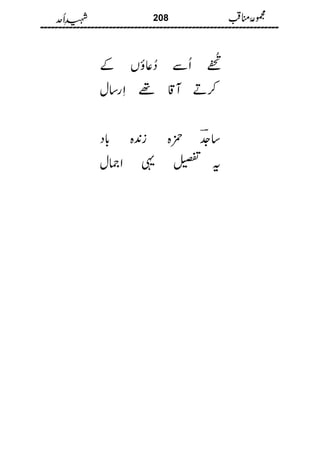 مجموعۂ مناقب 208 شہیدِ اُحد
تحفے اُسے دُعاؤں کے
کرتے تھے آقا اِرسال
ساجدؔ حمزہ زندہ باد
یہ تفصیل یہی اجمال